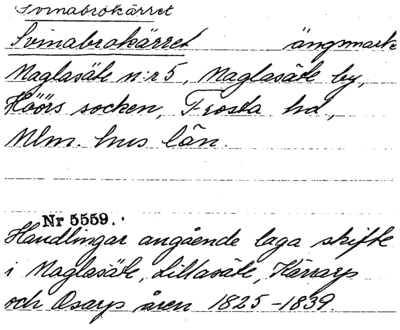 Svinabrokärret
Svinabrokärret ängsmark
Maglasäte n:r 5, Maglasäte by,
Höörs socken, Frosta hd,
Mlm. hus län.
Nr 5559.
Handlingar angående laga skifte
i Maglasäte, Lillasäte, Kärrarp
och Osarp åren 1825-1839.